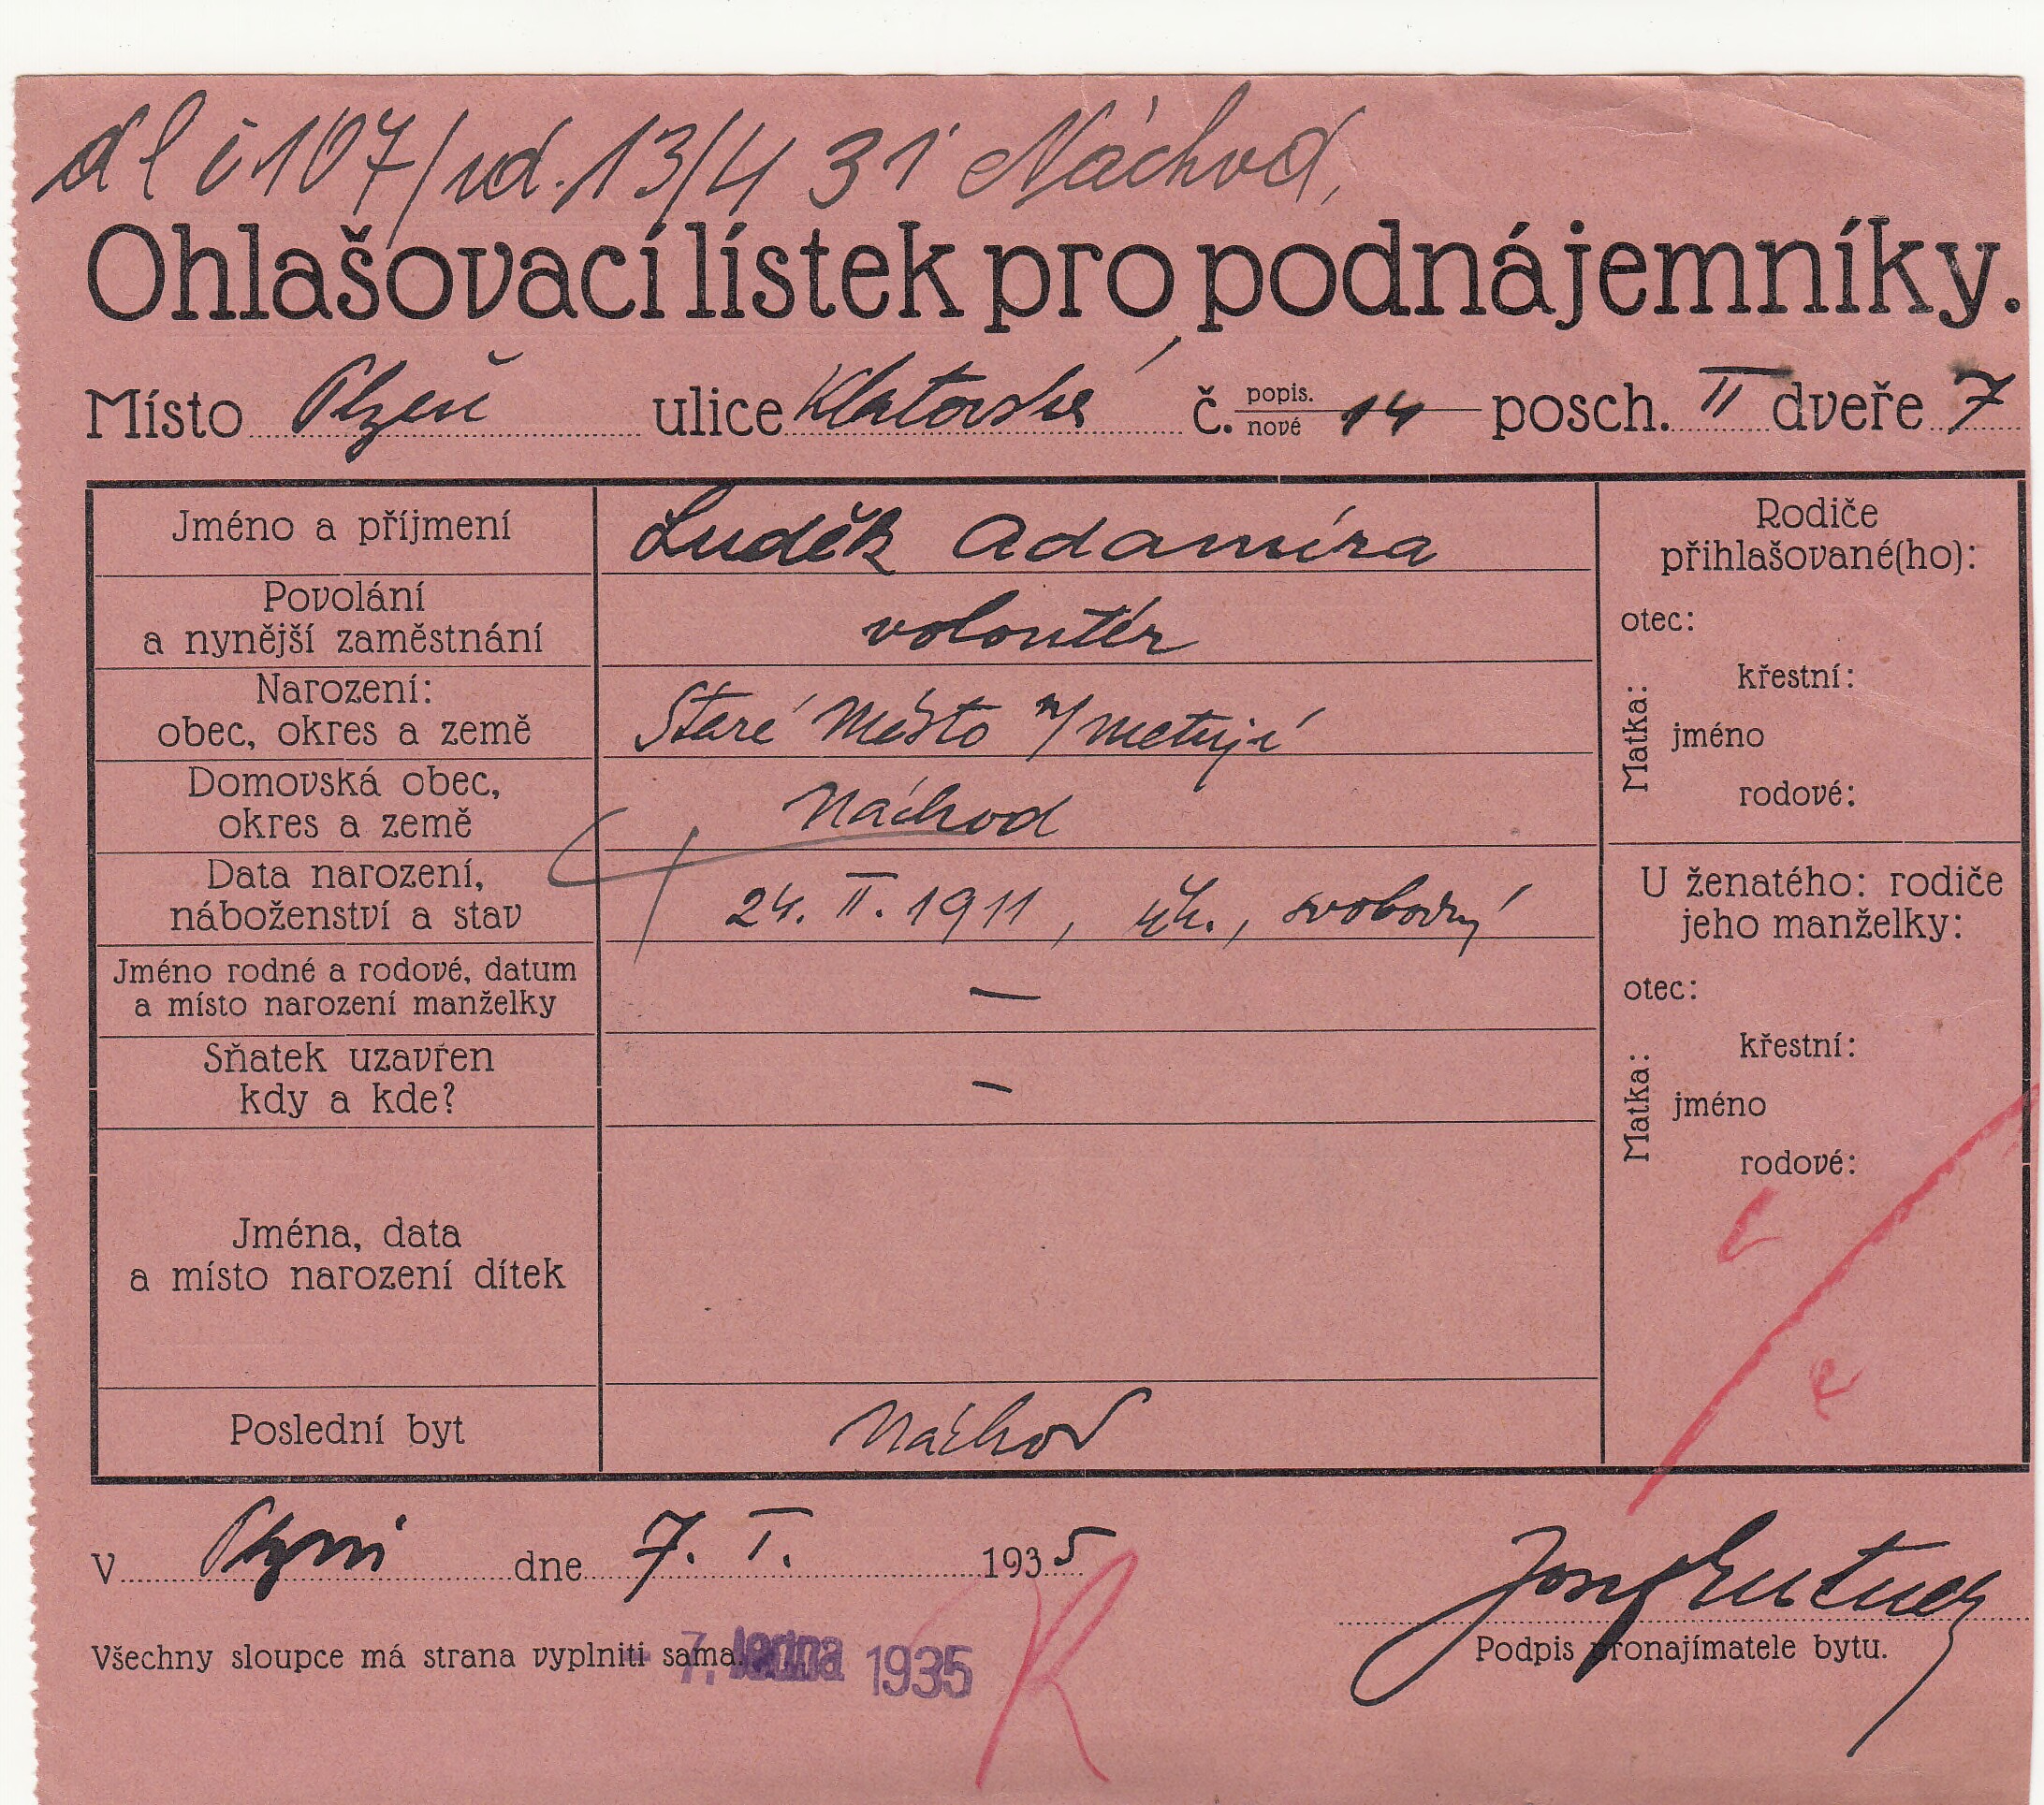 d l č 107/vd. 13/4 31 Náchod,
Ohlašovací lístek pro podnájemníky.
Místo Plzeň ulice Klatovská č. popis. nové 14 posch. II dveře 7
Jméno a příjmení Luděk Adamíra
Povolání
a nynější zaměstnání volontér
Narození:
obec, okres a země Staré Město n/Metují
Domovská obec,
okres a země Náchod
Data narození,
náboženství a stav 24. II. 1911, svobodný
Jméno rodné a rodové, datum
a místo narození manželky —
Sňatek uzavřen
kdy a kde? —
Jména, data
a místo narození dítek
Poslední byt Náchod
Rodiče
přihlašované(ho):
otec:
Matka:
křestní:
jméno
rodové:
U ženatého: rodiče
jeho manželky:
otec:
Matka:
křestní:
jméno
rodové:
V Plzni dne 7. I. 1935
Josef
Všechny sloupce má strana vyplniti sama.
Podpis pronajímatele bytu.
- 7. ledna 1935
R